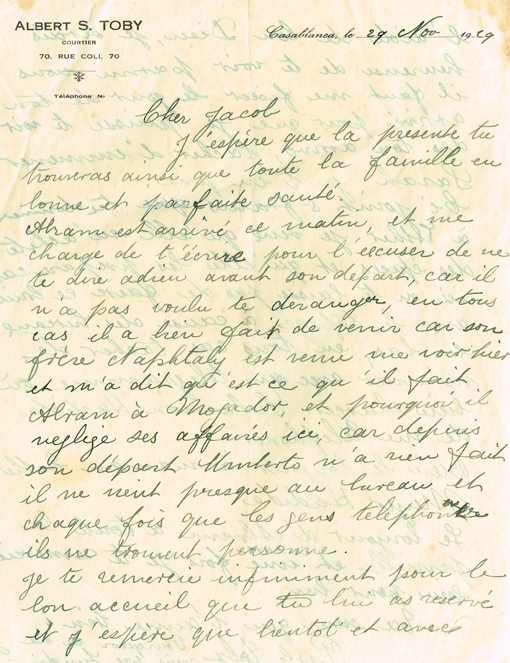 ALBERT S. TOBY
COURTIER
70, RUE COLI, 70
Téléphone No
Casablanca, le 29 Nov 1929
Cher Jacob
J'espère que la presente tu
trouveras ainsi que toute la famille en
bonne et parfaite santé.
Abram est arrivé ce matin, et me
charge de t'écrire pour l'excuser de ne
te dire adieu avant son départ, car il
n'a pas voulu te deranger, en tous
cas il a bien fait de venir car son
frère Naphtaly est venu me voir hier
et m'a dit qu'est ce qu'il fait
Abram à Mogador, et pourquoi il
neglige ses affaires ici, car depuis
son départ Umberto n'a rien fait
il ne vient presque au bureau et
chaque fois que les gens telephone
ils ne trouvent personne.
je te remercie infiniment pour le
bon accueil que tu lui as reservé
et j'espère que bientot et avec